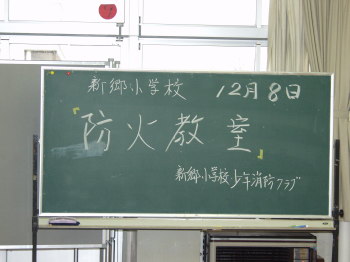 新郷小学校 12月8日
『防火教室』
新郷小学校少年消防クラブ